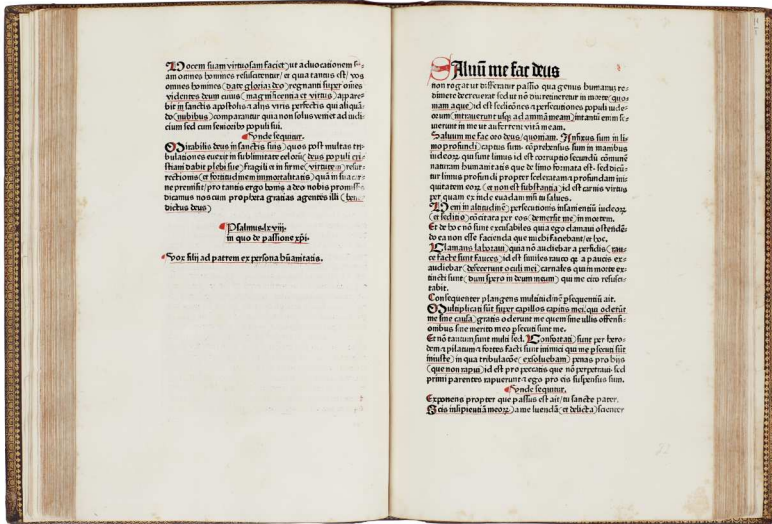 Vocem suam virtuosam faciet ut aduocationem su-
am omnes homines resuscitentur et quia tantus est vos
omnes homines date gloriam deo regnanti super omnes
videntes deum cuius magnificentia et virtus appare-
bit in sanctis apostolis aliis viris perfectis qui aliquā-
do nubibus comparantur quia non solus veniet ad iudi-
cium sed cum senioribꝰ populi sui.
Vnde sequitur.
Mirabilis deus in sanctis suis quos post multas tri-
bulationes euexit in sublimitatē celoꝝ deus populi cri-
stiani dabit plebi sue fragili et infirme virtutem resur-
rectionis et fortitudinem immortalitatis quam in sua car-
ne premisit pro tantis ergo bonis a deo nobis promissis
dicamus nos cum propheta gratias agentes illi bene-
dictus deus
Psalmus lxviij.
in quo de passione xp̄i.
Vox filij ad patrem ex persona hūanitatis.
Saluū me fac deus
non rogat ut differatur passio qua genus humanus re-
dimere decreuerat sed ut nō diu retineretur in morte quo-
niam aque id est seditiones persecutiones populi iude-
orum intrauerunt usqꝫ ad animā meam intanti enim se-
uierunt in me ut auferrent vitā meam.
Saluum me fac oro deus quoniam. Infixus sum in li-
mo profundi captus sum comprehensus sum in manibus
iudeoꝝ qui sunt limus id est corruptio secundū cōmunē
naturam humanitatis que de limo formata est sed dicū-
tur limus profundi propter sceleratam profundam ini-
quitatem eoꝝ et non est substantia id est carnis virtus
per quam ex inde euadam mihi tu salues.
Veni in altitudinē persecutionis insanientiū iudeoꝝ
et seditio cōcitata per eos demersit me in mortem.
Et de hoc nō sunt excusabiles quia ego clamaui ostendē-
do ea non esse facienda que michi faciebant et hoc.
Clamans laboraui quia nō audiebar a perfidis rau-
ce facte sunt fauces id est similes rauco qꝫ a paucis ex-
audiebar defecerunt oculi mei carnales qui in morte ex-
tincti sunt dum spero in deum meum qui me cito resusci-
tabit.
Consequenter plangens multitudinē psequentiū ait.
Multiplicati sūt super capillos capitis mei qui oderūt
me sine causa gratis oderunt me quem sine ullis offensi-
onibus sine merito meo psecuti sunt me.
Et nō tantum sunt multi sed. Confortati sunt per hero-
dem pilatum fortes facti sunt inimici qui me psecuti sūt
iniuste in qua tribulacōe exsoluebam penas pro hijs
que non rapui id est pro peccatis que nō perpetraui sed
primi parentes rapuerunt ego pro eis suspensus sum.
Vnde sequitur.
Exponens propter que passus est ait tu sancte pater.
Scis insipientiā meoꝝ a me luendā et delicta scienter